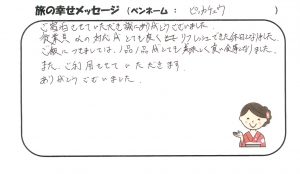 旅の幸せメッセージ (ペンネーム : ピッカチュウ )
ご宿泊させていただき誠にありがとうございました。
従業員の対応 とても良く リフレッシュできた休日になりました。
ご飯につきましては、1品1品 とても美味しく良い食事になりました。
また、ご利用させていただきます。
ありがとうございました。